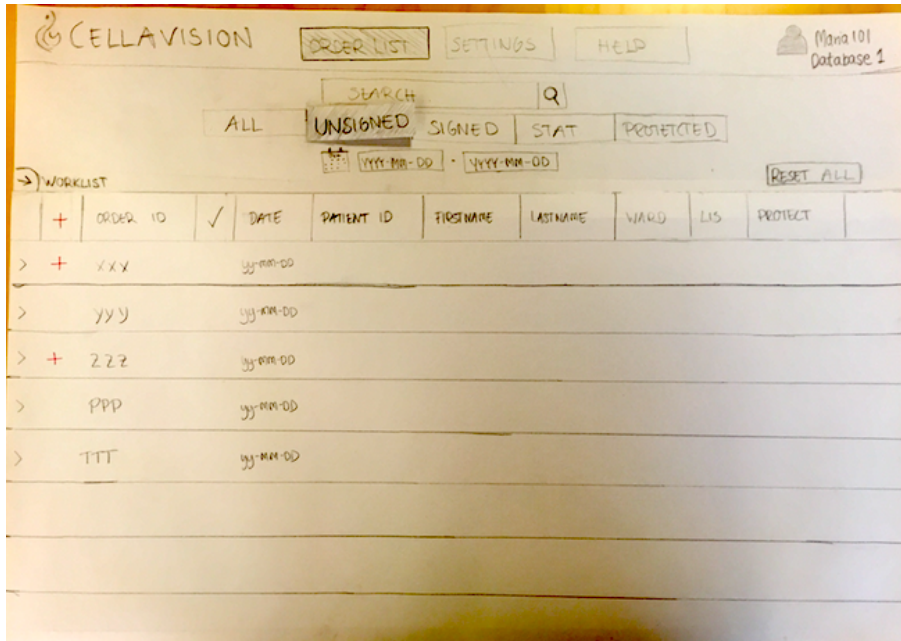 CELLAVISION ORDER LIST SETTINGS HELP Mana101
Database 1
SEARCH
ALL UNSIGNED SIGNED STAT PROTETCTED
YYYY-MM-DD - YYYY-MM-DD
WORKLIST RESET ALL
+ ORDER ID ✓ DATE PATIENT ID FIRSTNAME LASTNAME WARD LIS PROTECT
> + XXX yy-mm-DD
> yyy yy-mm-DD
> + ZZZ yy-mm-DD
> PPP yy-mm-DD
> TTT yy-mm-DD